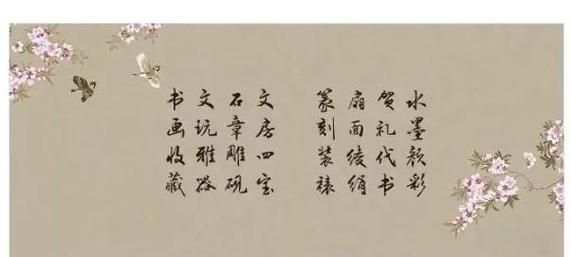 水墨颜彩
贺礼代书
扇面绫绢
篆刻装裱
文房四宝
石章雕砚
文玩雅器
书画收藏